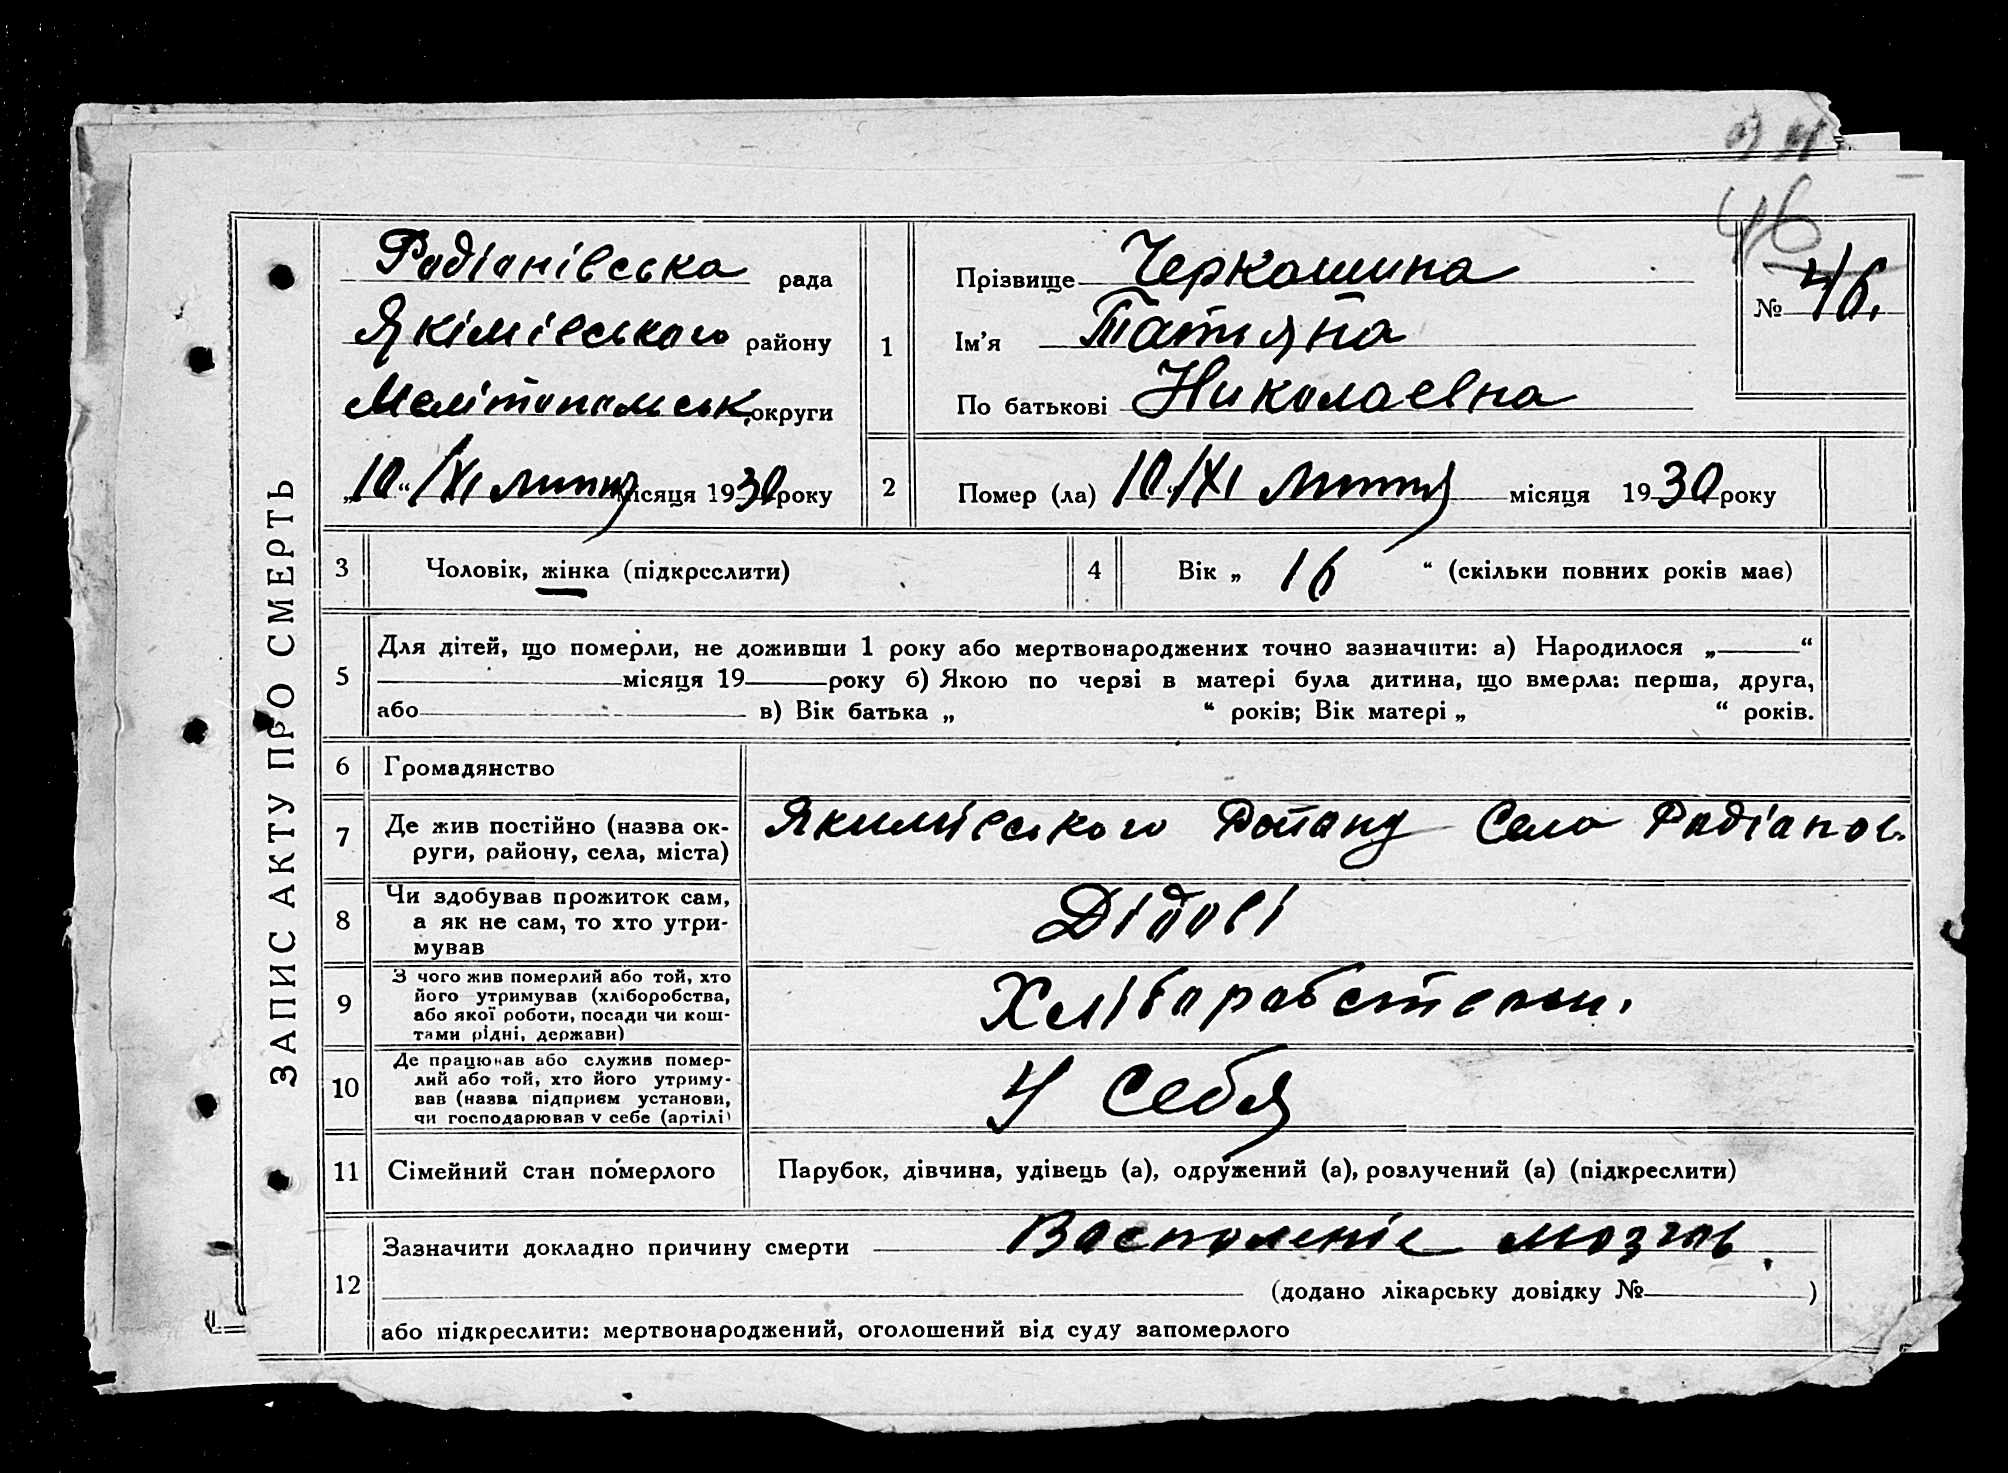 46
ЗАПИС АКТУ ПРО СМЕРТЬ
Радіанівська рада
Якімівського району
Мелітопольськ. округи
„10“ /XI місяця 1930 року
1
Прізвище Черкашина
Ім'я Татьяна
По батькові Николаевна
№ 46.
2
Помер (ла) 10/XI місяця 1930 року
3 Чоловік, жінка (підкреслити)
4 Вік „ 16 “ (скільки повних років має)
5
Для дітей, що померли, не доживши 1 року або мертвонароджених точно зазначити: а) Народилося „ “
місяця 19 року б) Якою по черзі в матері була дитина, що вмерла: перша, друга,
або в) Вік батька „ “ років; Вік матері „ “ років.
6 Громадянство
7 Де жив постійно (назва ок-
руги, району, села, міста)
Якимівського Району Село Радіанов.
8 Чи здобував прожиток сам,
а як не сам, то хто утри-
мував
Дідові
9 З чого жив померлий або той, хто
його утримував (хліборобства,
або якої роботи, посади чи кош-
тами рідні, держави)
10 Де працював або служив помер-
лий або той, хто його утриму-
вав (назва підприєм установи,
чи господарював у себе (артілі)
У Себя
11 Сімейний стан померлого
Парубок, дівчина, удівець (а), одружений (а), розлучений (а) (підкреслити)
12
Зазначити докладно причину смерти Васполеніе мозгов
(додано лікарську довідку № )
або підкреслити: мертвонароджений, оголошений від суду запомерлого